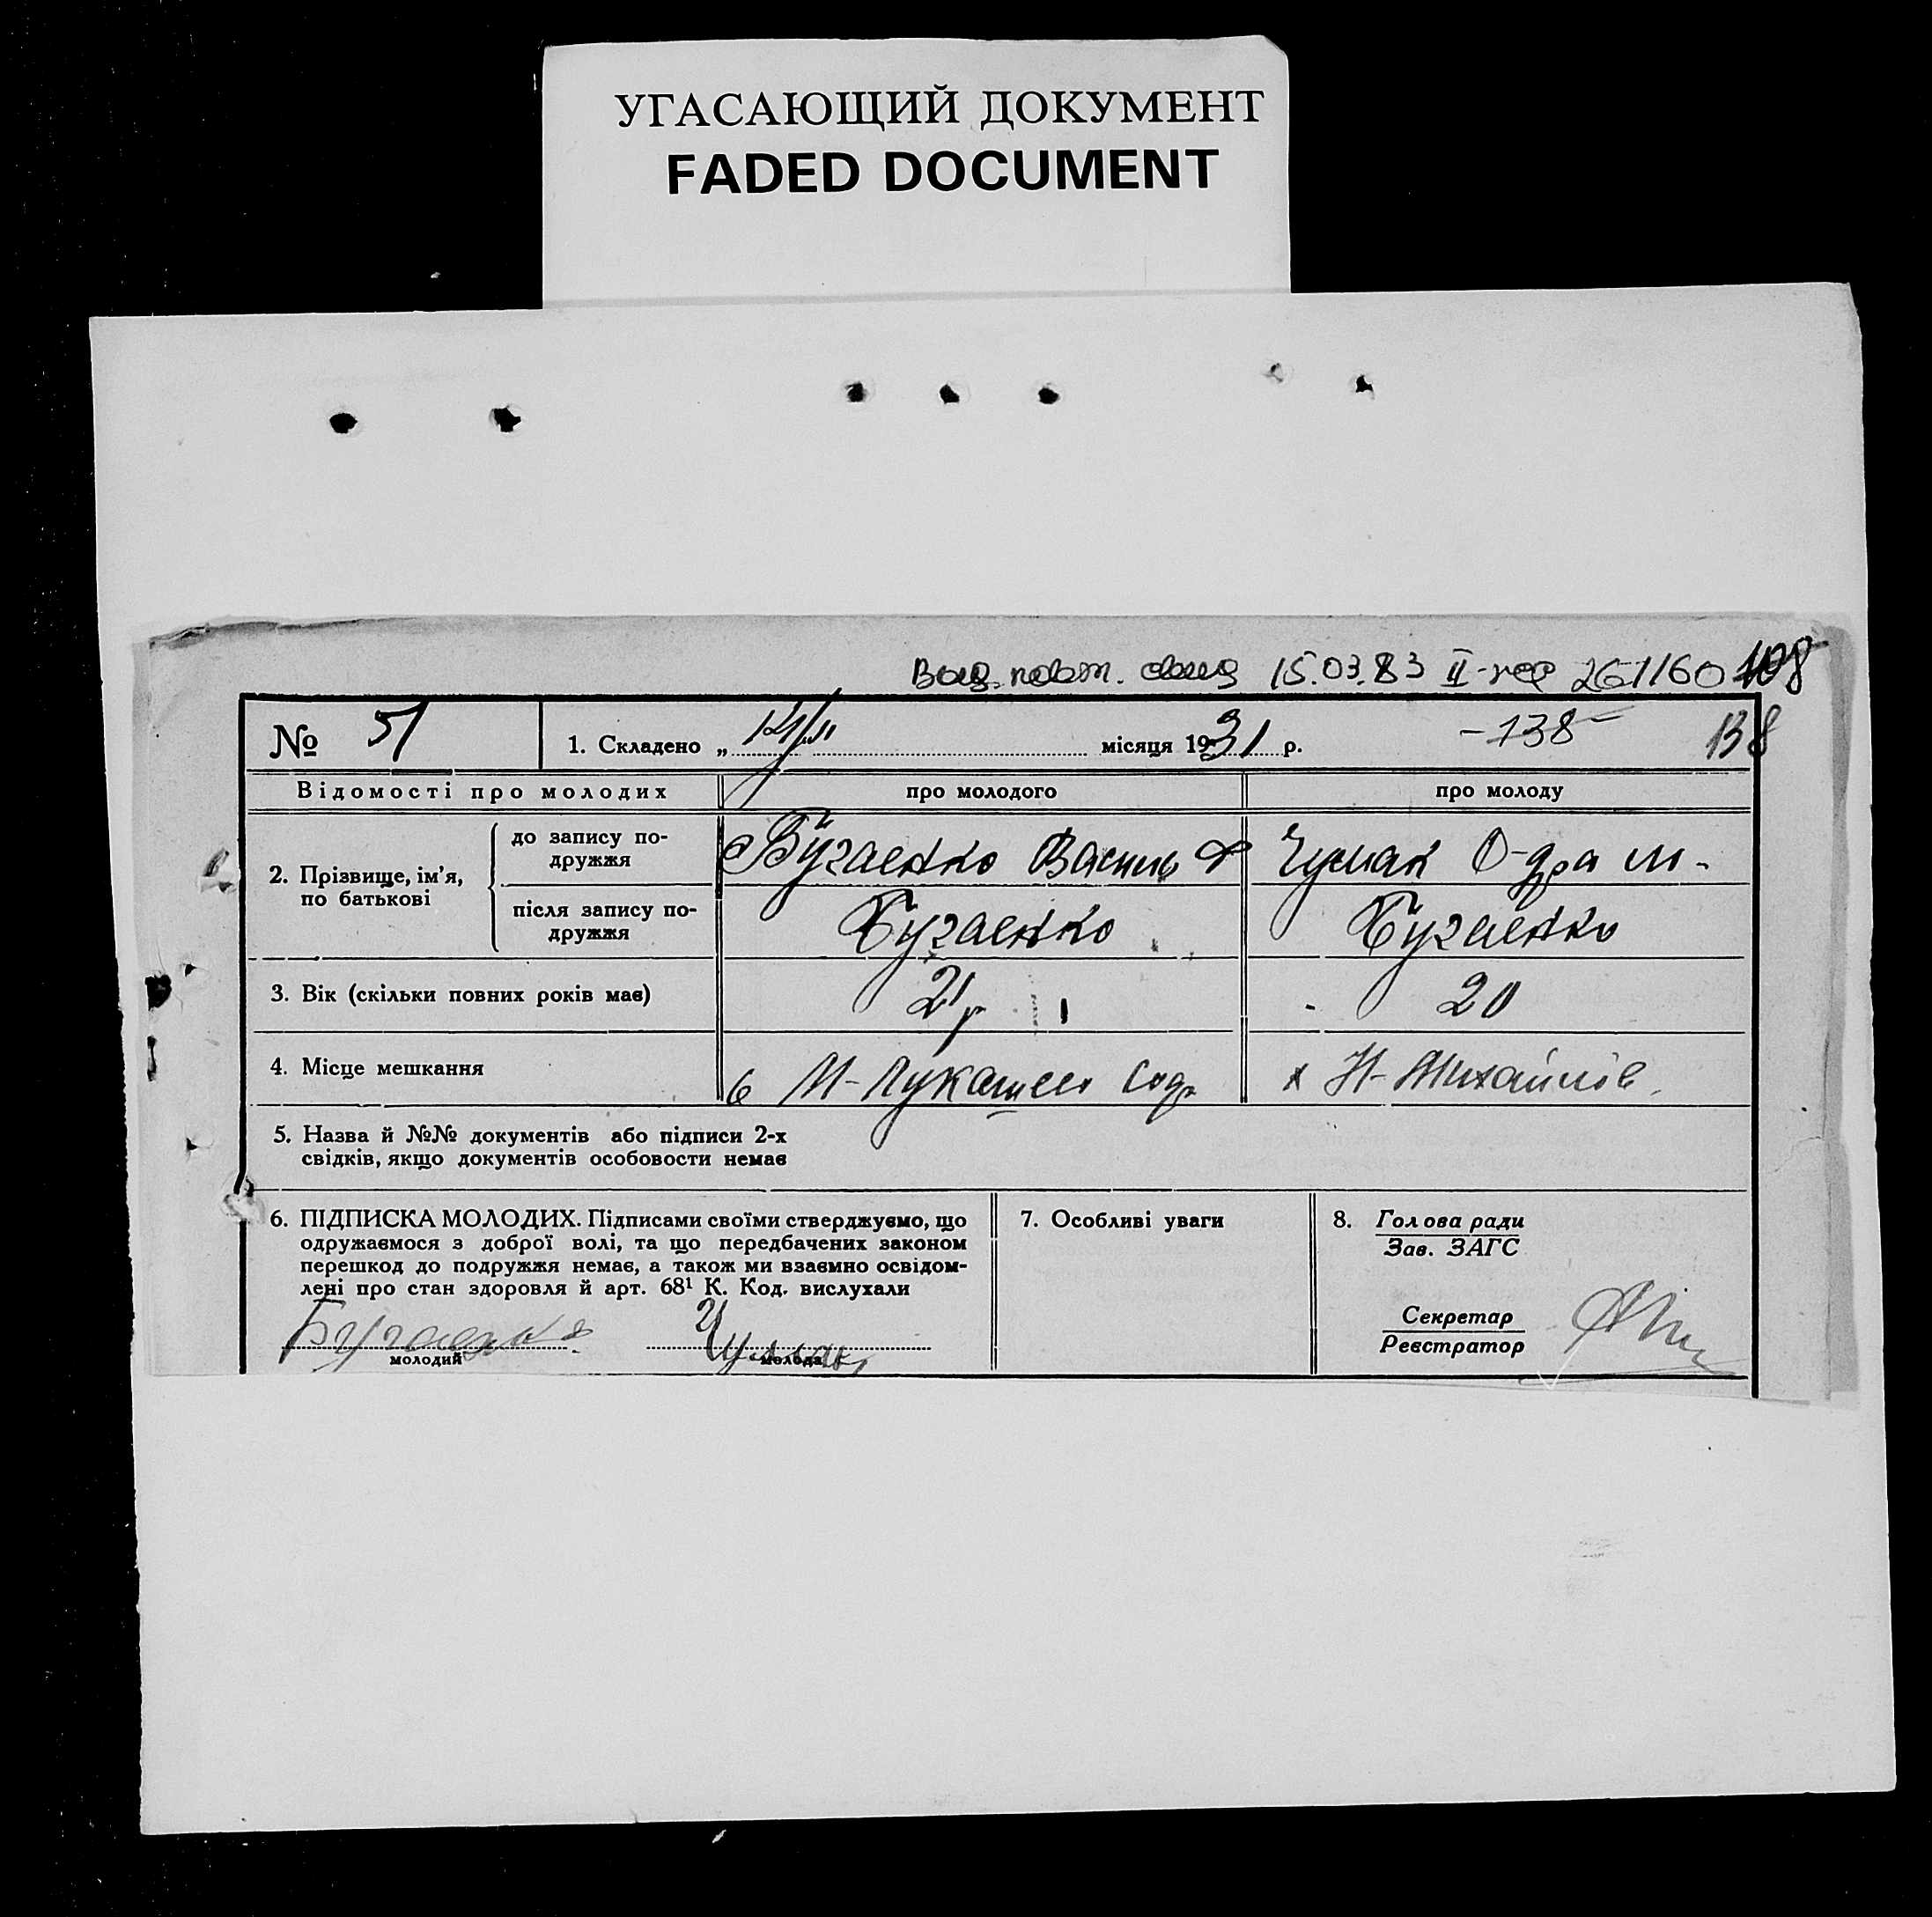 УГАСАЮЩИЙ ДОКУМЕНТ
FADED DOCUMENT
Выд. повт. свид 15.03.83 II-
108
№ 51
1. Складено „ місяця 1931 р.
-138-
138
Відомості про молодих
про молодого
про молоду
2. Прізвище, ім'я, по батькові
до запису подружжя
Бугаенко Василь Ф
Чумак О-дра М-
після запису подружжя
Бугаенко
Бугаенко
3. Вік (скільки повних років має)
21 р
20
4. Місце мешкання
М-Лукашево
х Н-Михайлів
5. Назва й №№ документів або підписи 2-х
свідків, якщо документів особовости немає
6. ПІДПИСКА МОЛОДИХ. Підписами своїми стверджуємо, що
одружаємося з доброї волі, та що передбачених законом
перешкод до подружжя немає, а також ми взаємно освідом-
лені про стан здоровля й арт. 68¹ К. Код. вислухали
Бугаенко
молодий
Чумак
молода
7. Особливі уваги
8. Голова ради
Зав. ЗАГС
Секретар
Реєстратор